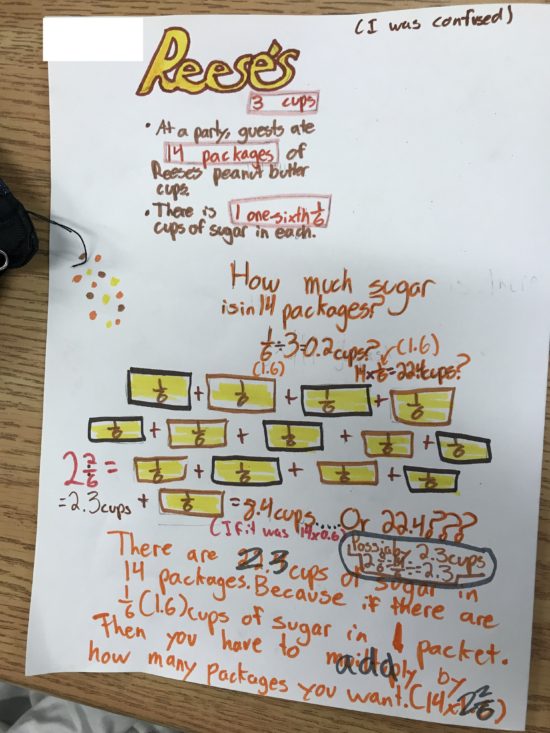 (I was confused)
Reese's
3 cups
• At a party, guests ate
14 packages of
Reese's peanut butter
cups.
• There is 1 one-sixth 1/6
cups of sugar in each.
How much sugar
is in 14 packages?
1/6 ÷ 3 = 0.2 cups? (1.6)
(1.6) 14 x 1/6 = 22.4 cups?
1/6 + 1/6 + 1/6 + 1/6
1/6 + 1/6 + 1/6 + 1/6 + 1/6
2 2/6 = 1/6 + 1/6 + 1/6 + 1/6
= 2.3 cups + 1/6 = 8.4 cups..... Or 22.4???
(If it was 14x0.6)
Possibly 2.3 cups
= 2.3
There are 2.3 cups of sugar in
14 packages. Because if there are
1/6 (1.6) cups of sugar in 1 packet.
Then you have to add by
how many packages you want. (14x